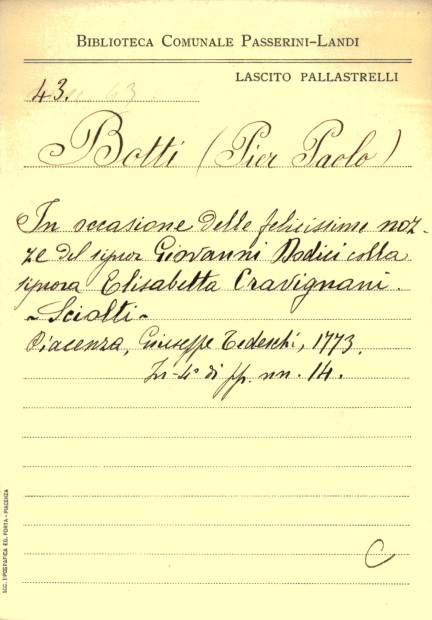 BIBLIOTECA COMUNALE PASSERINI-LANDI
LASCITO PALLASTRELLI
43.
Botti (Pier Paolo)
In occasione delle felicissime noz-
ze del signor Giovanni Dodici colla
signora Elisabetta Cravignani.
- Sciolti -
Piacenza, Giuseppe Tedeschi, 1773.
In-4° di pp. nn. 14.
C
SOC. TIPOGRAFICA ED. PORTA - PIACENZA